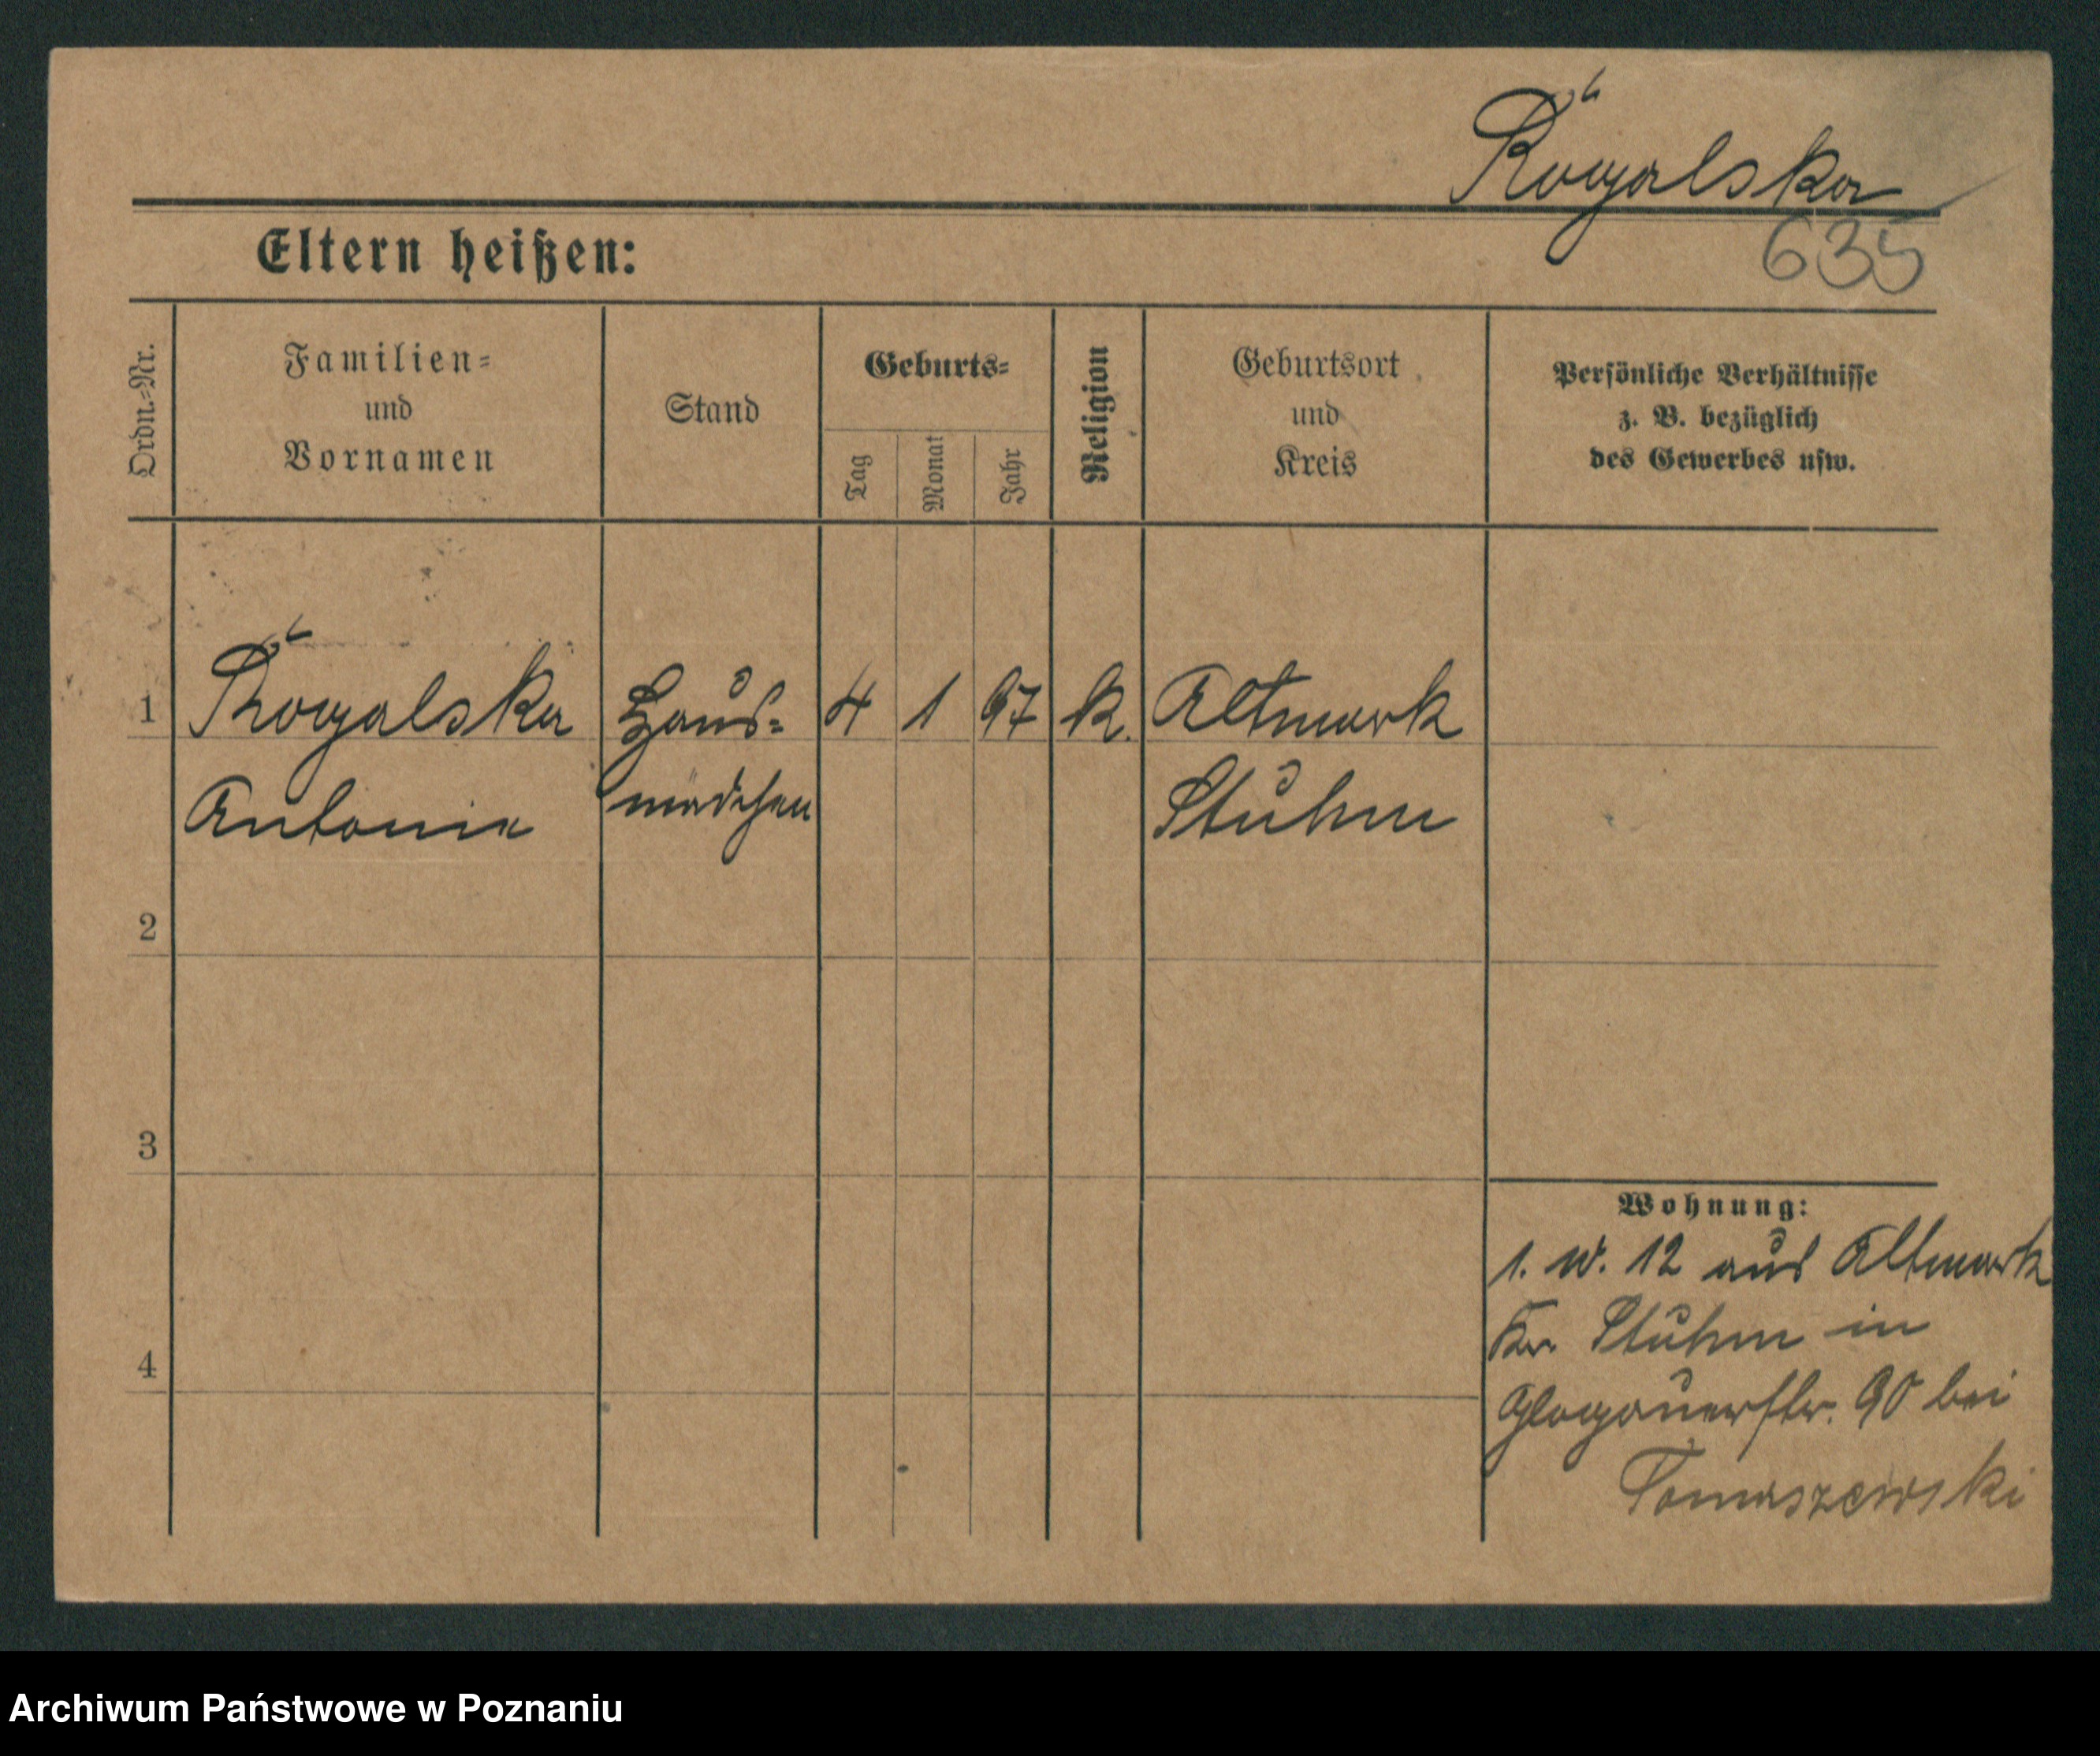 Rogalska
635
Eltern heißen:
Ordn.-Nr.
Familien-
und
Vornamen
Stand
Geburts-
Tag
Monat
Jahr
Religion
Geburtsort
und
Kreis
Persönliche Verhältnisse
z. B. bezüglich
des Gewerbes usw.
1 Rogalska Haus- 4 1 97 k. Altmark
Antonie mädchen Stuhm
2
3
4
Wohnung:
1. 12 aus Altmark
Kr. Stuhm in
Glogauerstr. 90 bei
Tomaszewski
Archiwum Państwowe w Poznaniu